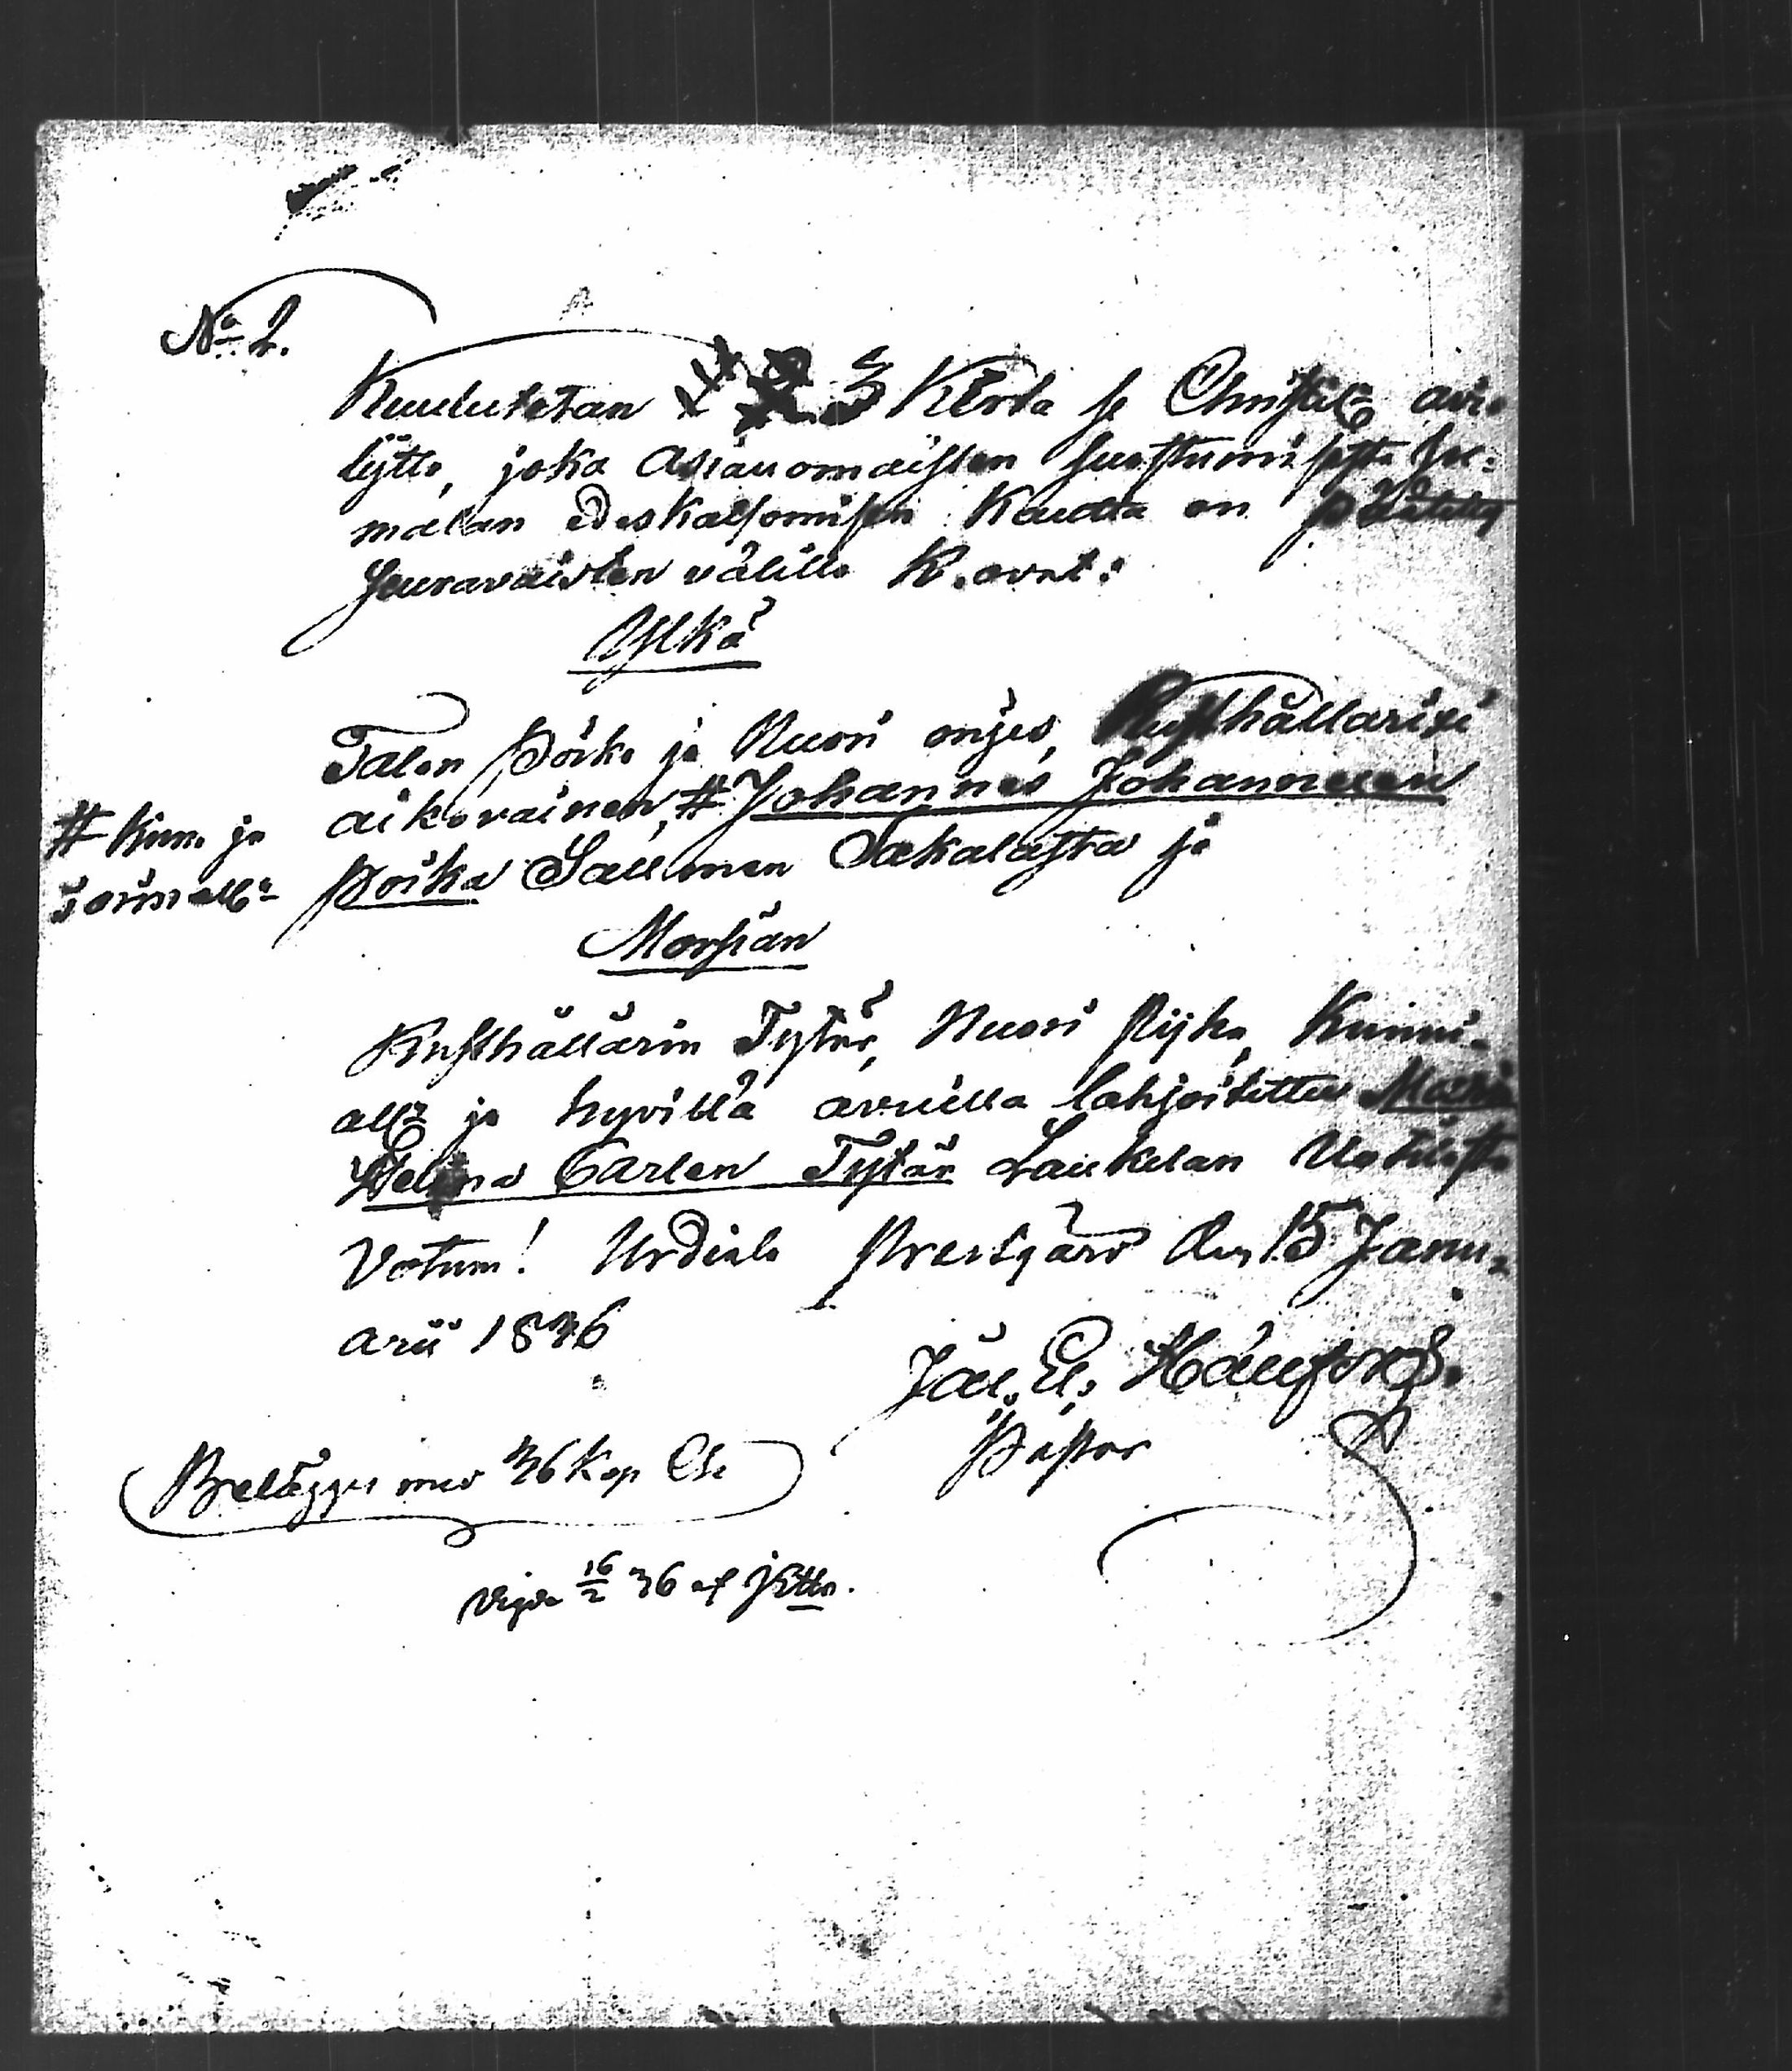 No 2.
Kuulutetan 1 2 3 Kērta se Christil: avio
lijtto, joka Asianomaisten suostumisesta Ju-
malan edeskatsomisen kautta on päätetty
seuravaisten välille K. ovat:
Ylkä
Talon Poika ja Nuori mies, Rusthållarixi
aikovainen, # Johannes Johannexen
# Kunn. ja
toimell:
Poika Sallmen Takalasta ja
Morsian
Rusthållärin Tytär, Nuori Pijka, Kunni-
all: ja hyvillä avuilla lahjoitettu Maria
Helena Carlen Tytär Laukelan Uotilasta
Votum! Urdiala Prestgård den 15 Janu-
arii 1836
Pastor
Belägges med 36 Kop
Vigde 16/2 36 af